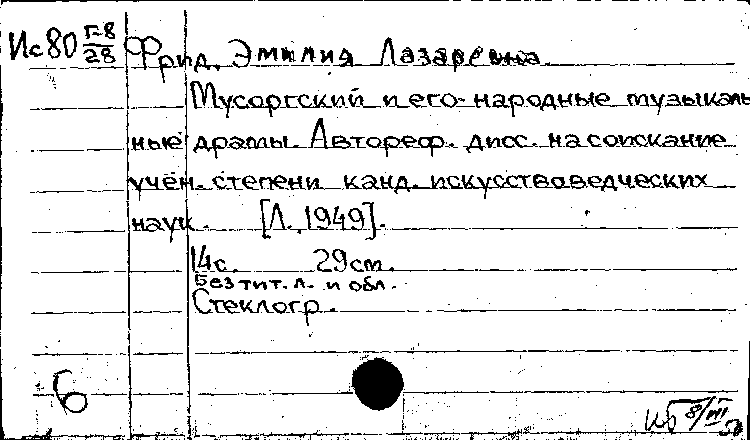 Ис80 Г-8/28 Фрид, Эмилия Лазаревна
Мусоргский и его народные музыкаль
ные драмы. Автореф. дисс. на соискание
учён. степени канд. искусствоведческих
наук. [Л., 1949].
14с. 29см.
Без тит. л. и обл.
Стеклогр.
Б
8/VII